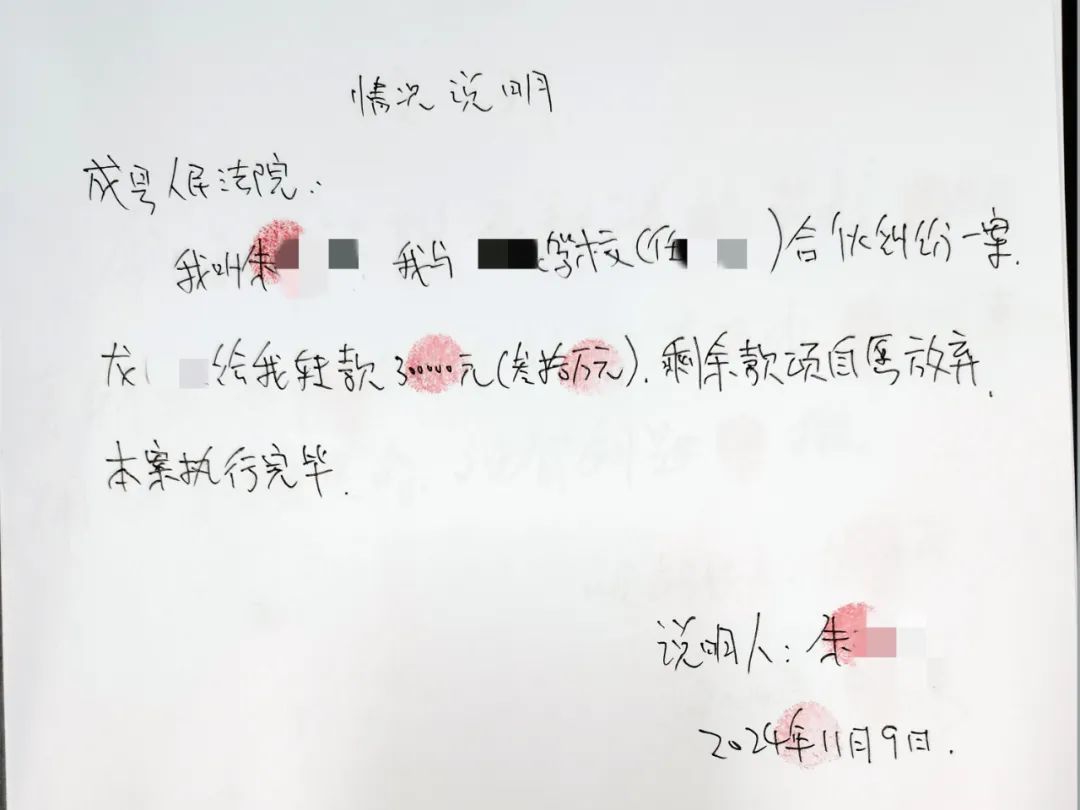 情况说明
成县人民法院:
我叫朱 我与 学校(任 )合伙纠纷一案.
龙 给我转款300000元(叁拾万元).剩余款项自愿放弃.
本案执行完毕.
说明人:朱
2024年11月9日.